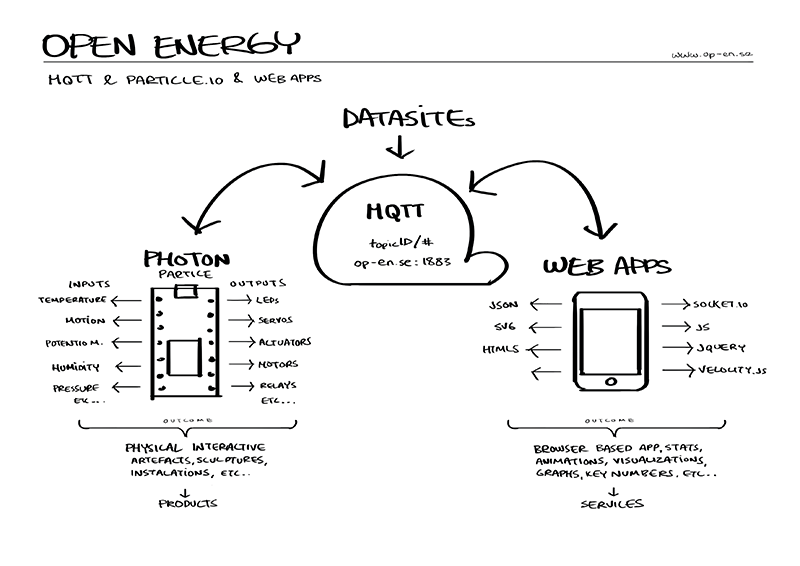 OPEN ENERGY
www.op-en.se
MQTT & PARTICLE.IO & WEB APPS
DATASITEs
MQTT
topicID/#
op-en.se:1883
PHOTON
PARTICLE
INPUTS
TEMPERATURE
MOTION
POTENTIOM.
HUMIDITY
PRESSURE
ETC...
OUTPUTS
LEDs
SERVOS
ACTUATORS
MOTORS
RELAYS
ETC...
OUTCOME
PHYSICAL INTERACTIVE
ARTEFACTS, SCULPTURES,
INSTALATIONS, ETC..
PRODUCTS
WEB APPS
JSON
SVG
HTML5
SOCKET.IO
JS
JQUERY
VELOCITY.JS
OUTCOME
BROWSER BASED APP, STATS,
ANIMATIONS, VISUALIZATIONS,
GRAPHS, KEY NUMBERS, ETC..
SERVICES